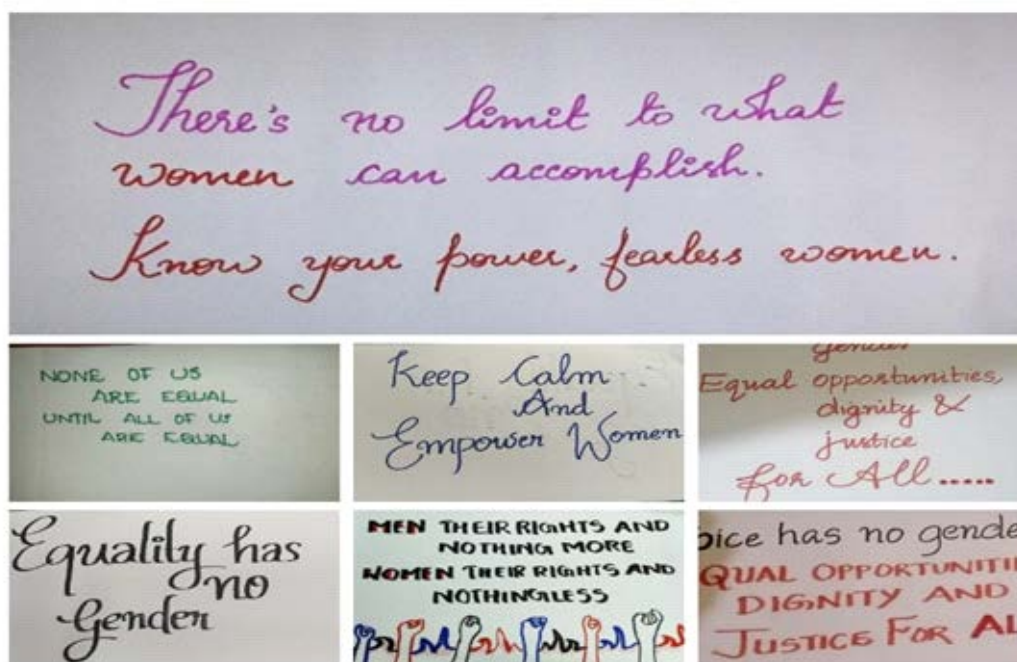 There's no limit to what
women can accomplish.
Know your power, fearless women.
NONE OF US
ARE EQUAL
UNTIL ALL OF US
ARE EQUAL
Keep Calm
And
Empower Women
gender
Equal opportunities,
dignity &
justice
for All.....
Equality has
no
Gender
MEN THEIR RIGHTS AND
NOTHING MORE
WOMEN THEIR RIGHTS AND
NOTHINGLESS
oice has no gende
QUAL OPPORTUNITI
DIGNITY AND
JUSTICE FOR AL